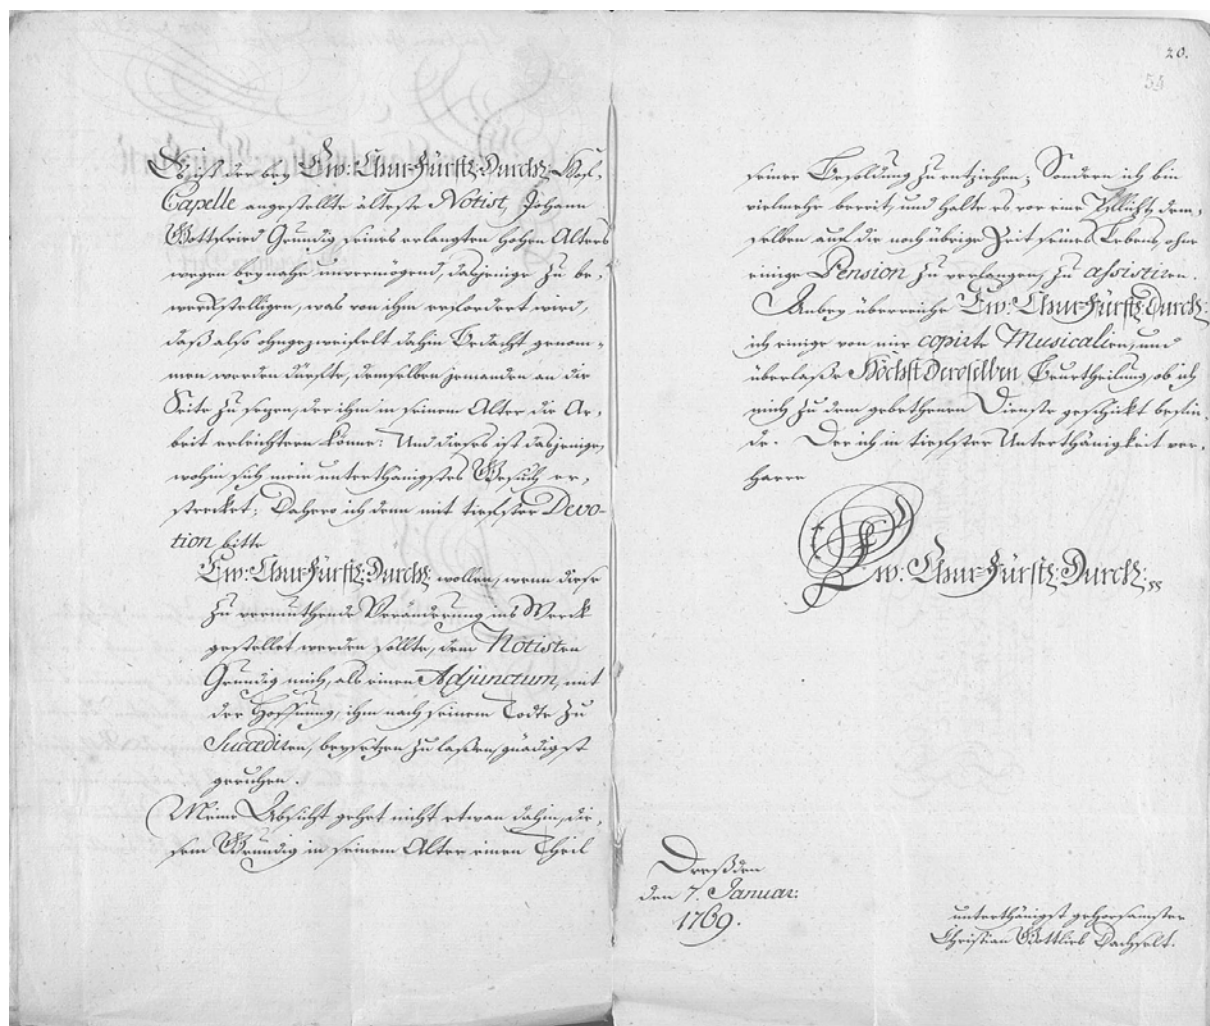 Es ist der bey Ew: Chur-Fürstl: Durchl: Hof-
Capelle angestellte älteste Notist, Johann
Gottfried Grundig, seines erlangten hohen Alters
wegen beynahe unvermögend, dasjenige zu be-
werckstelligen, was von ihm erfordert wird,
daß also ohngezweifelt dahin Bedacht genom-
men werden dürffte, demselben jemanden an die
Seite zu setzen, der ihm in seinem Alter die Ar-
beit erleichtern könne: Und dieses ist dasjenige,
wohin sich mein unterthänigstes Gesuch er-
strecket; Dahero ich denn mit tieffster Devo-
tion bitte
Ew: Chur-Fürstl: Durchl: wollen, wenn diese
zu vermuthende Veränderung ins Werck
gestellet werden sollte, dem Notisten
Grundig mich, als einen Adjunctum, mit
der Hoffnung, ihm nach seinem Todte zu
Succediren, beysetzen zu laßen, gnädigst
geruhen.
Meine Absicht gehet nicht etwan dahin, die-
sem Grundig in seinem Alter einen Theil
20.
54
seiner Besoldung zu entziehen; Sondern ich bin
vielmehr bereit, und halte es vor eine Pflicht, dem-
selben auf die noch übrige Zeit seines Lebens, ohne
einige Pension zu verlangen, zu assistiren.
Anbey überreiche Ew: Chur-Fürstl: Durchl:
ich einige von mir copirte Musicalien, und
überlaße Höchst Deroselben Beurtheilung, ob ich
mich zu dem gebethenen Dienste geschickt befin-
de. Der ich in tieffster Unterthänigkeit ver-
harre
Ew: Chur-Fürstl: Durchl:
Dreßden
den 7. Januar:
1769.
unterthänigst gehorsamster
Christian Gottlieb Dachselt.